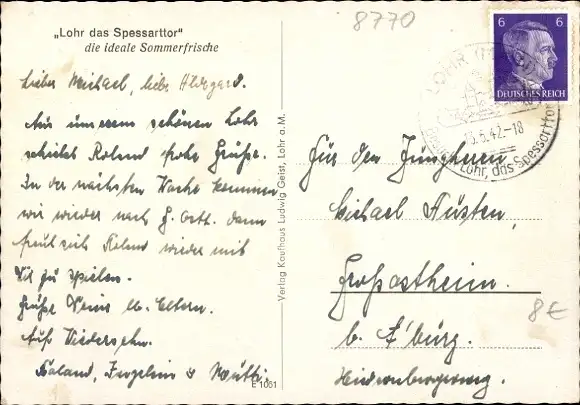 „Lohr das Spessarttor"
die ideale Sommerfrische
Lieber Michael, liebe Hildegard.
Aus unserem schönen Lohr
schickt Roland frohe Grüße.
In der nächsten Woche kommen
wir wieder nach G. Osth. dann
freut sich Roland wieder mit
Dir zu spielen.
Grüße Deine lb. Eltern.
Auf Wiedersehn.
Roland, & Mutti.
E 1061
Verlag Kaufhaus Ludwig Geist, Lohr a. M.
8770
6 6
DEUTSCHES REICH
LOHR
13.5.42.-18
Lohr, das Spessarttor
Für den Jungherrn
Michael
Großostheim.
b. A'burg.
Hindenburgerweg.
8€